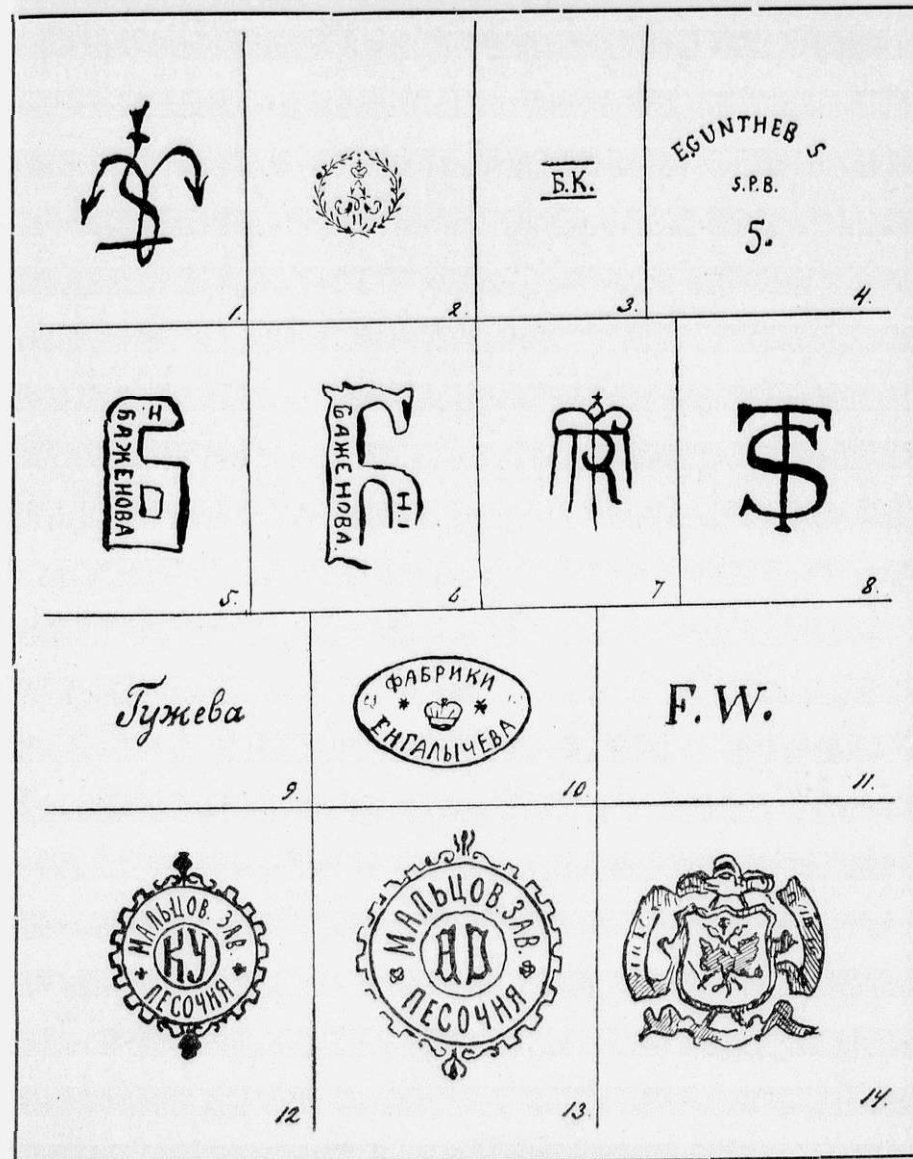 1.
2.
Б.К.
3.
E.GUNTHEB S
S.P.B.
5.
4.
Н
БАЖЕНОВА
5.
БАЖЕНОВА.
Н.
6
7
TS
8.
Гужева
9.
ФАБРИКИ
ЕНГАЛЫЧЕВА
10.
F. W.
11.
МАЛЬЦОВ. ЗАВ.
КУ
ПЕСОЧНЯ
12
МАЛЬЦОВ. ЗАВ.
АР
ПЕСОЧНЯ
13.
14.